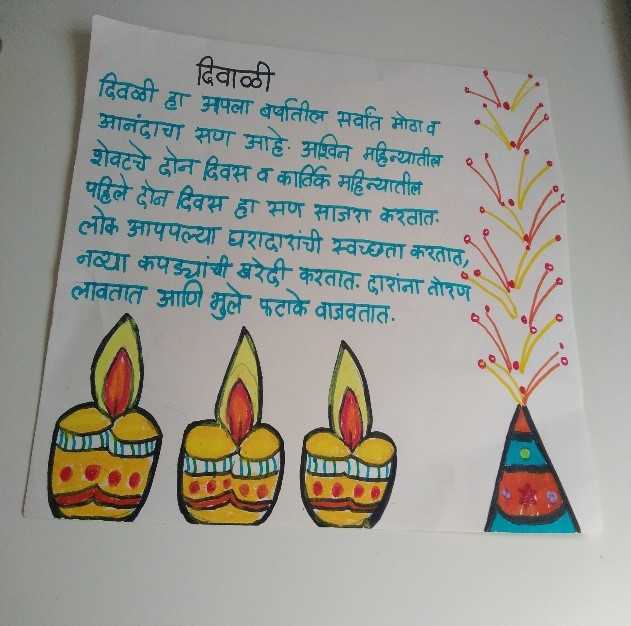 दिवाळी
दिवळी हा आपला वर्षातील सर्वात मोठा व
आनंदाचा सण आहे. अश्विन महिन्यातील
शेवटचे दोन दिवस व कार्तिक महिन्यातील
पहिले दोन दिवस हा सण साजरा करतात.
लोक आपपल्या घरादारांची स्वच्छता करतात,
नव्या कपड्यांची खरेदी करतात. दारांना तोरण
लावतात आणि मुले फटाके वाजवतात.